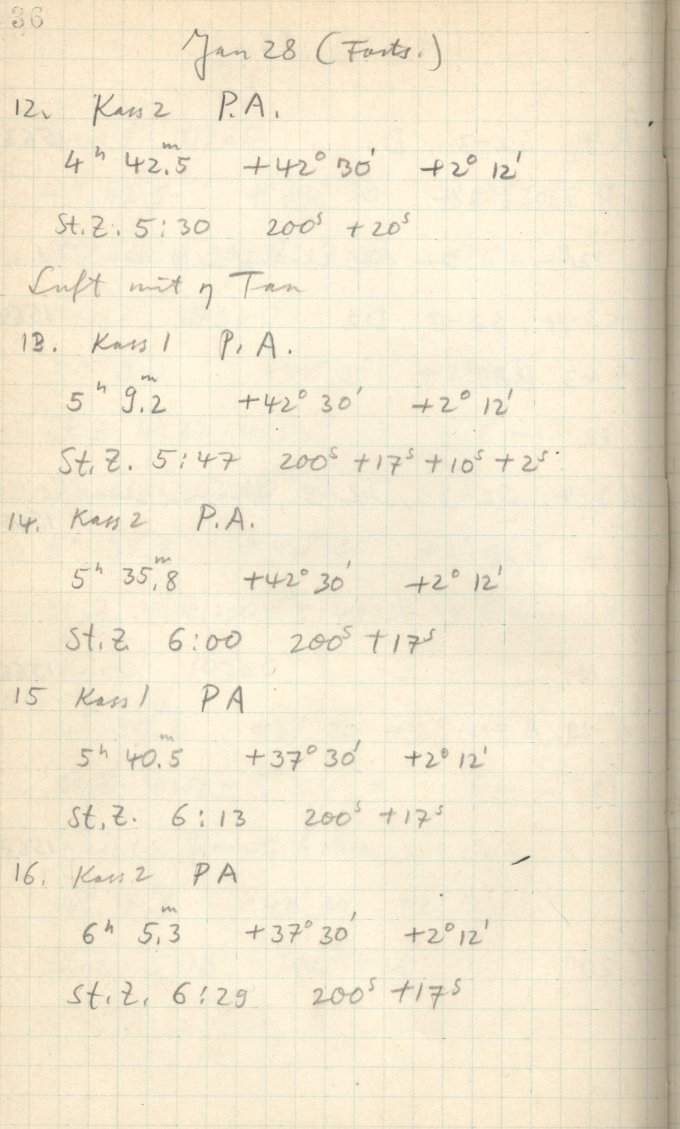 36
Jan 28 (Forts.)
12. Kass 2 P.A.
4ʰ 42.5ᵐ +42° 30' +2° 12'
St.Z. 5:30 200ˢ +20ˢ
Luft mit η Tau
13. Kass 1 P.A.
5ʰ 9.2ᵐ +42° 30' +2° 12'
St.Z. 5:47 200ˢ +17ˢ +10ˢ +2ˢ
14. Kass 2 P.A.
5ʰ 35.8ᵐ +42° 30' +2° 12'
St.Z. 6:00 200ˢ +17ˢ
15 Kass 1 PA
5ʰ 40.5ᵐ +37° 30' +2° 12'
St.Z. 6:13 200ˢ +17ˢ
16. Kass 2 PA
6ʰ 5.3ᵐ +37° 30' +2° 12'
St.Z. 6:29 200ˢ +17ˢ